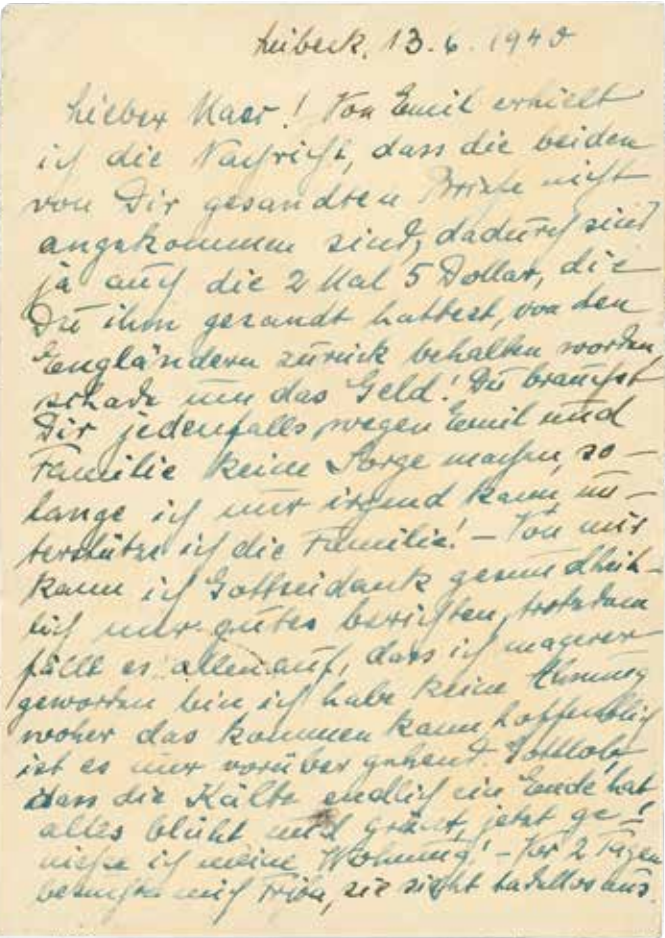 Lübeck, 13.6.1940
Lieber Maxr! Von Emil erhielt
ich die Nachricht, dass die beiden
von Dir gesandten Briefe nicht
angekommen sind, dadurch sind
ja auch die 2 Mal 5 Dollar, die
Du ihm gesandt hattest, von den
Engländern zurück behalten worden,
schade um das Geld! Du brauchst
Dir jedenfalls wegen Emil und
Familie keine Sorge machen, so-
lange ich nur irgend kann, un-
terstütze ich die Familie! – Von mir
kann ich Gottseidank gesundheit-
lich nur gutes berichten, trotzdem
fällt es allen auf, dass ich magerer
geworden bin, ich habe keine Ahnung
woher das kommen kann, hoffentlich
ist es nur vorüber gehend. Gottlob,
dass die Kälte endlich ein Ende hat
alles blüht und grünt, jetzt ge-
niesse ich meine Wohnung! – Vor 2 Tagen
besuchte mich, sie sieht tadellos aus.